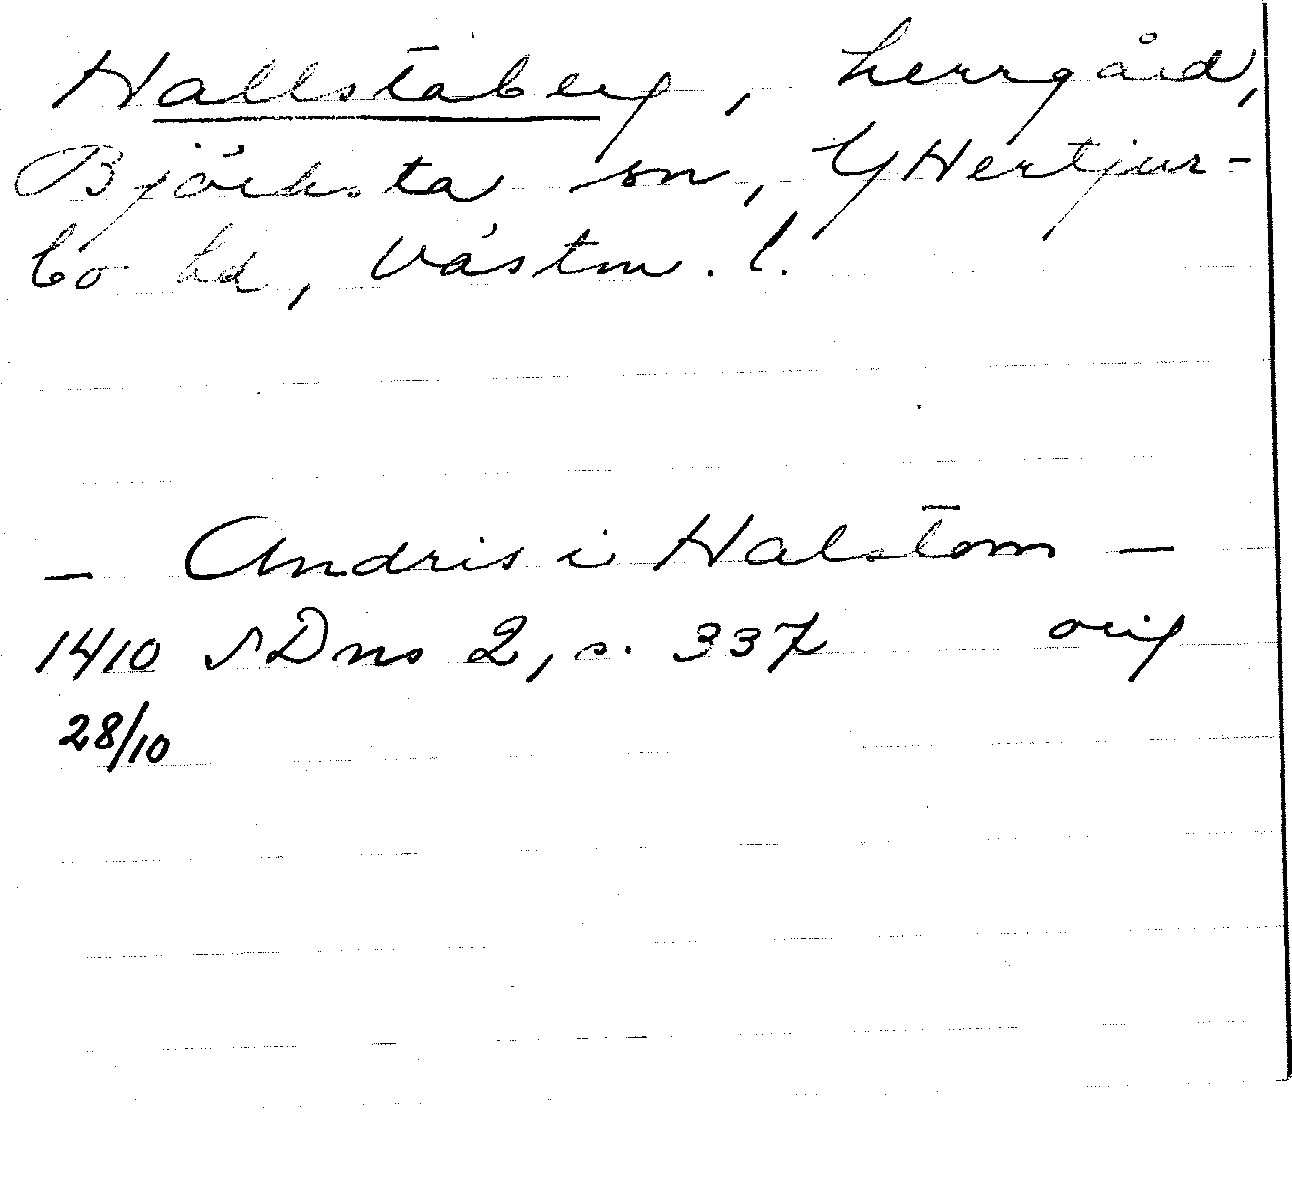 Hallstaberg, herrgård,
Björksta sn, Yttertjur-
bo hd, Västm. l.
– Andris i Halstom –
1410 SDns 2, s. 337 orig
28/10